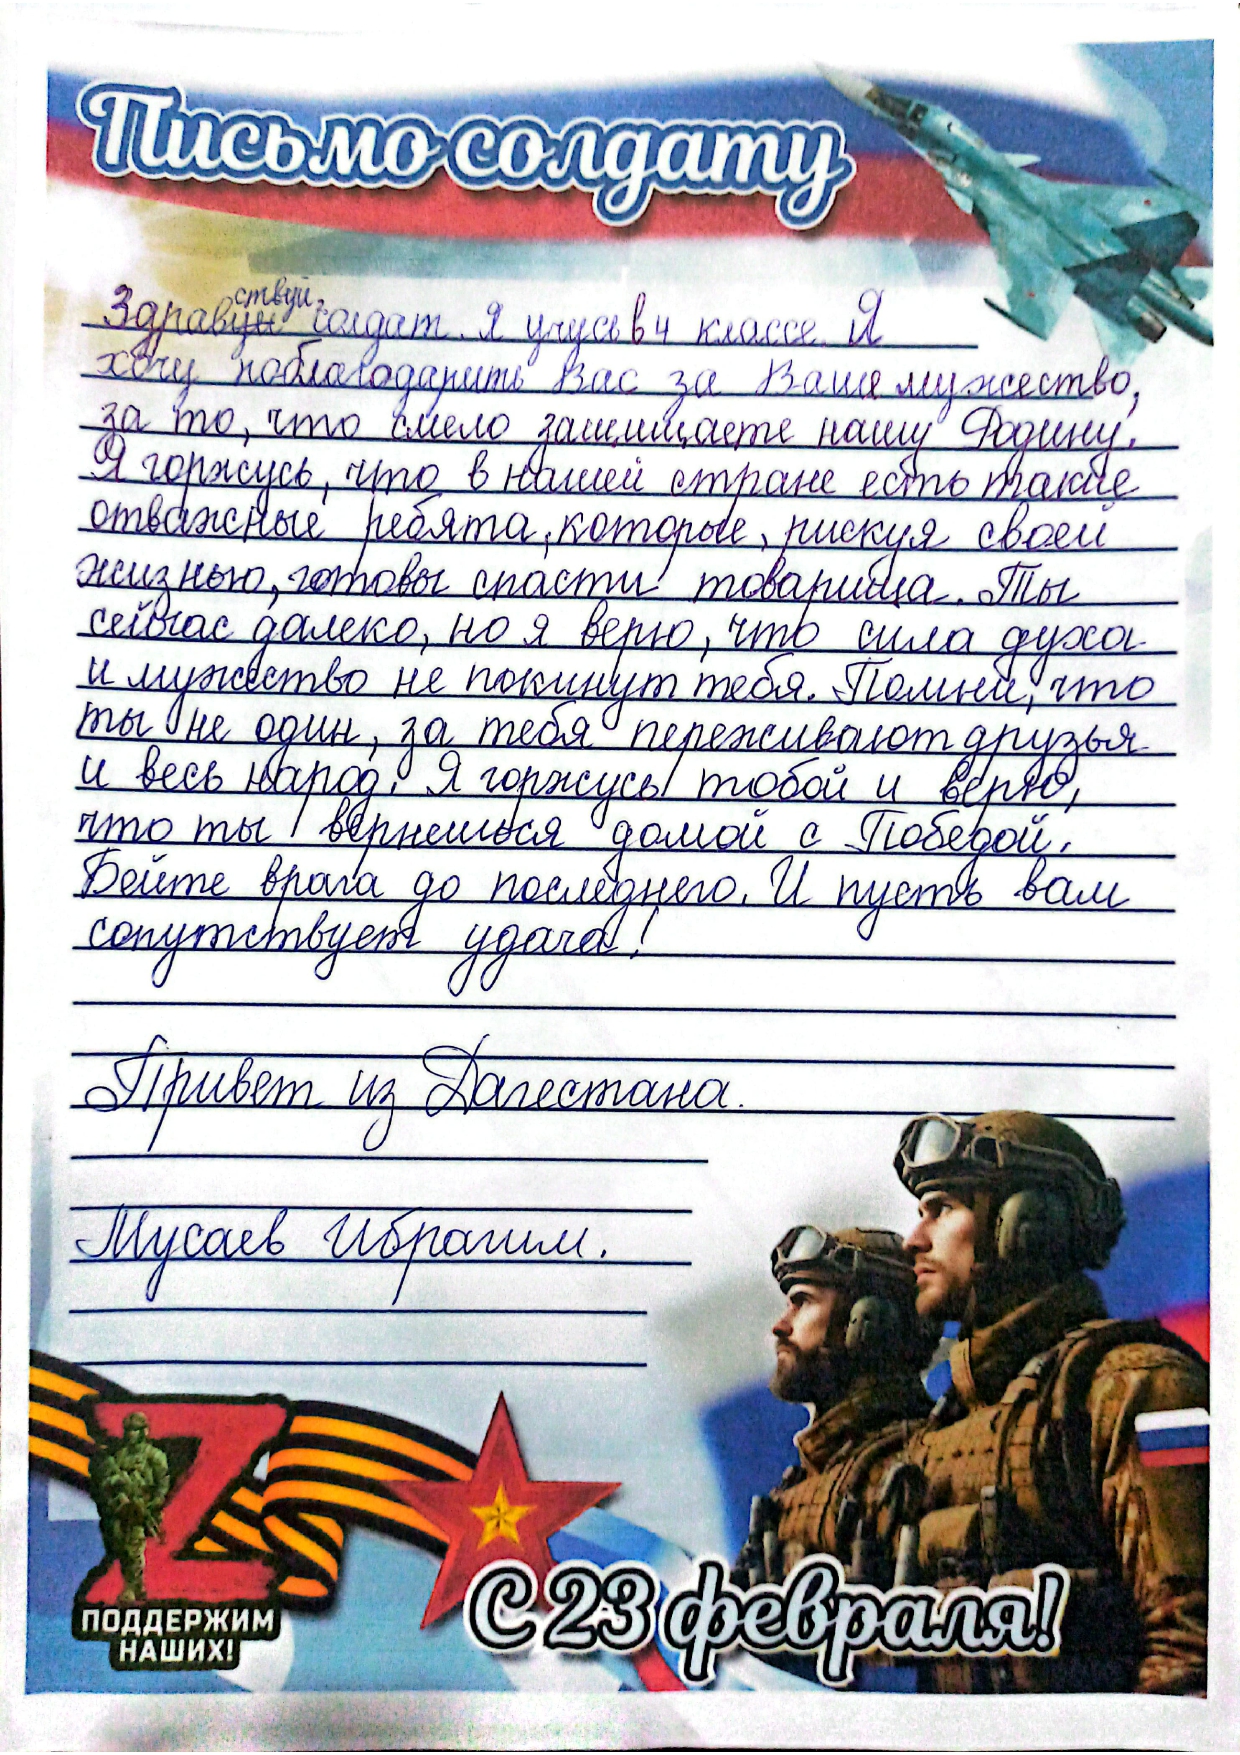 Письмо солдату
Здравствуй, солдат. Я учусь в 4 классе. Я
хочу поблагодарить Вас за Ваше мужество,
за то, что смело защищаете нашу Родину.
Я горжусь, что в нашей стране есть такие
отважные ребята, которые, рискуя своей
жизнью, готовы спасти товарища. Ты
сейчас далеко, но я верю, что сила духа
и мужество не покинут тебя. Помни, что
ты не один, за тебя переживают друзья
и весь народ. Я горжусь тобой и верю,
что ты вернешься домой с Победой.
Бейте врага до последнего. И пусть вам
сопутствует удача!
Привет из Дагестана.
Мусаев Ибрагим.
ПОДДЕРЖИМ
НАШИХ!
С 23 февраля!